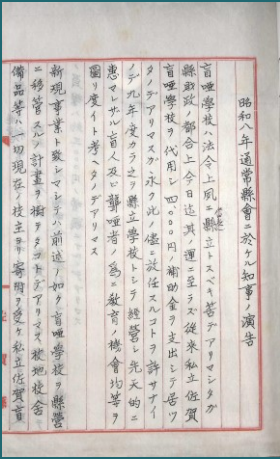 昭和八年通常縣會ニ於ケル知事ノ演告
盲唖學校ハ法令上風ニ縣立トスベキ筈デアリマシタガ
縣財政ノ都合上今日迄其ノ運ニ至ラズ從來私立佐賀
盲唖學校ヲ代用シ四、〇〇〇円ノ補助金ヲ支出シテ居ッ
タノデアリマスガ永ク此ノ儘ニ放任スルコトヲ許サナイ
ノデ九年度カラ之ヲ縣立學校トシテ經營シ先天的ニ
惠マレザル盲人及ビ聾唖者ノ爲ニ教育ノ機會均等ヲ
圖リ度イト考ヘタノデアリマス
新現事業ト致シマシテハ前述ノ如ク盲唖學校ヲ縣營
ニ移管スルノ計畫ヲ樹テタコトデアリマス校地校舍
備品等ハ一切現在ノ校主ヨリ寄附ヲ受ケ私立佐賀盲